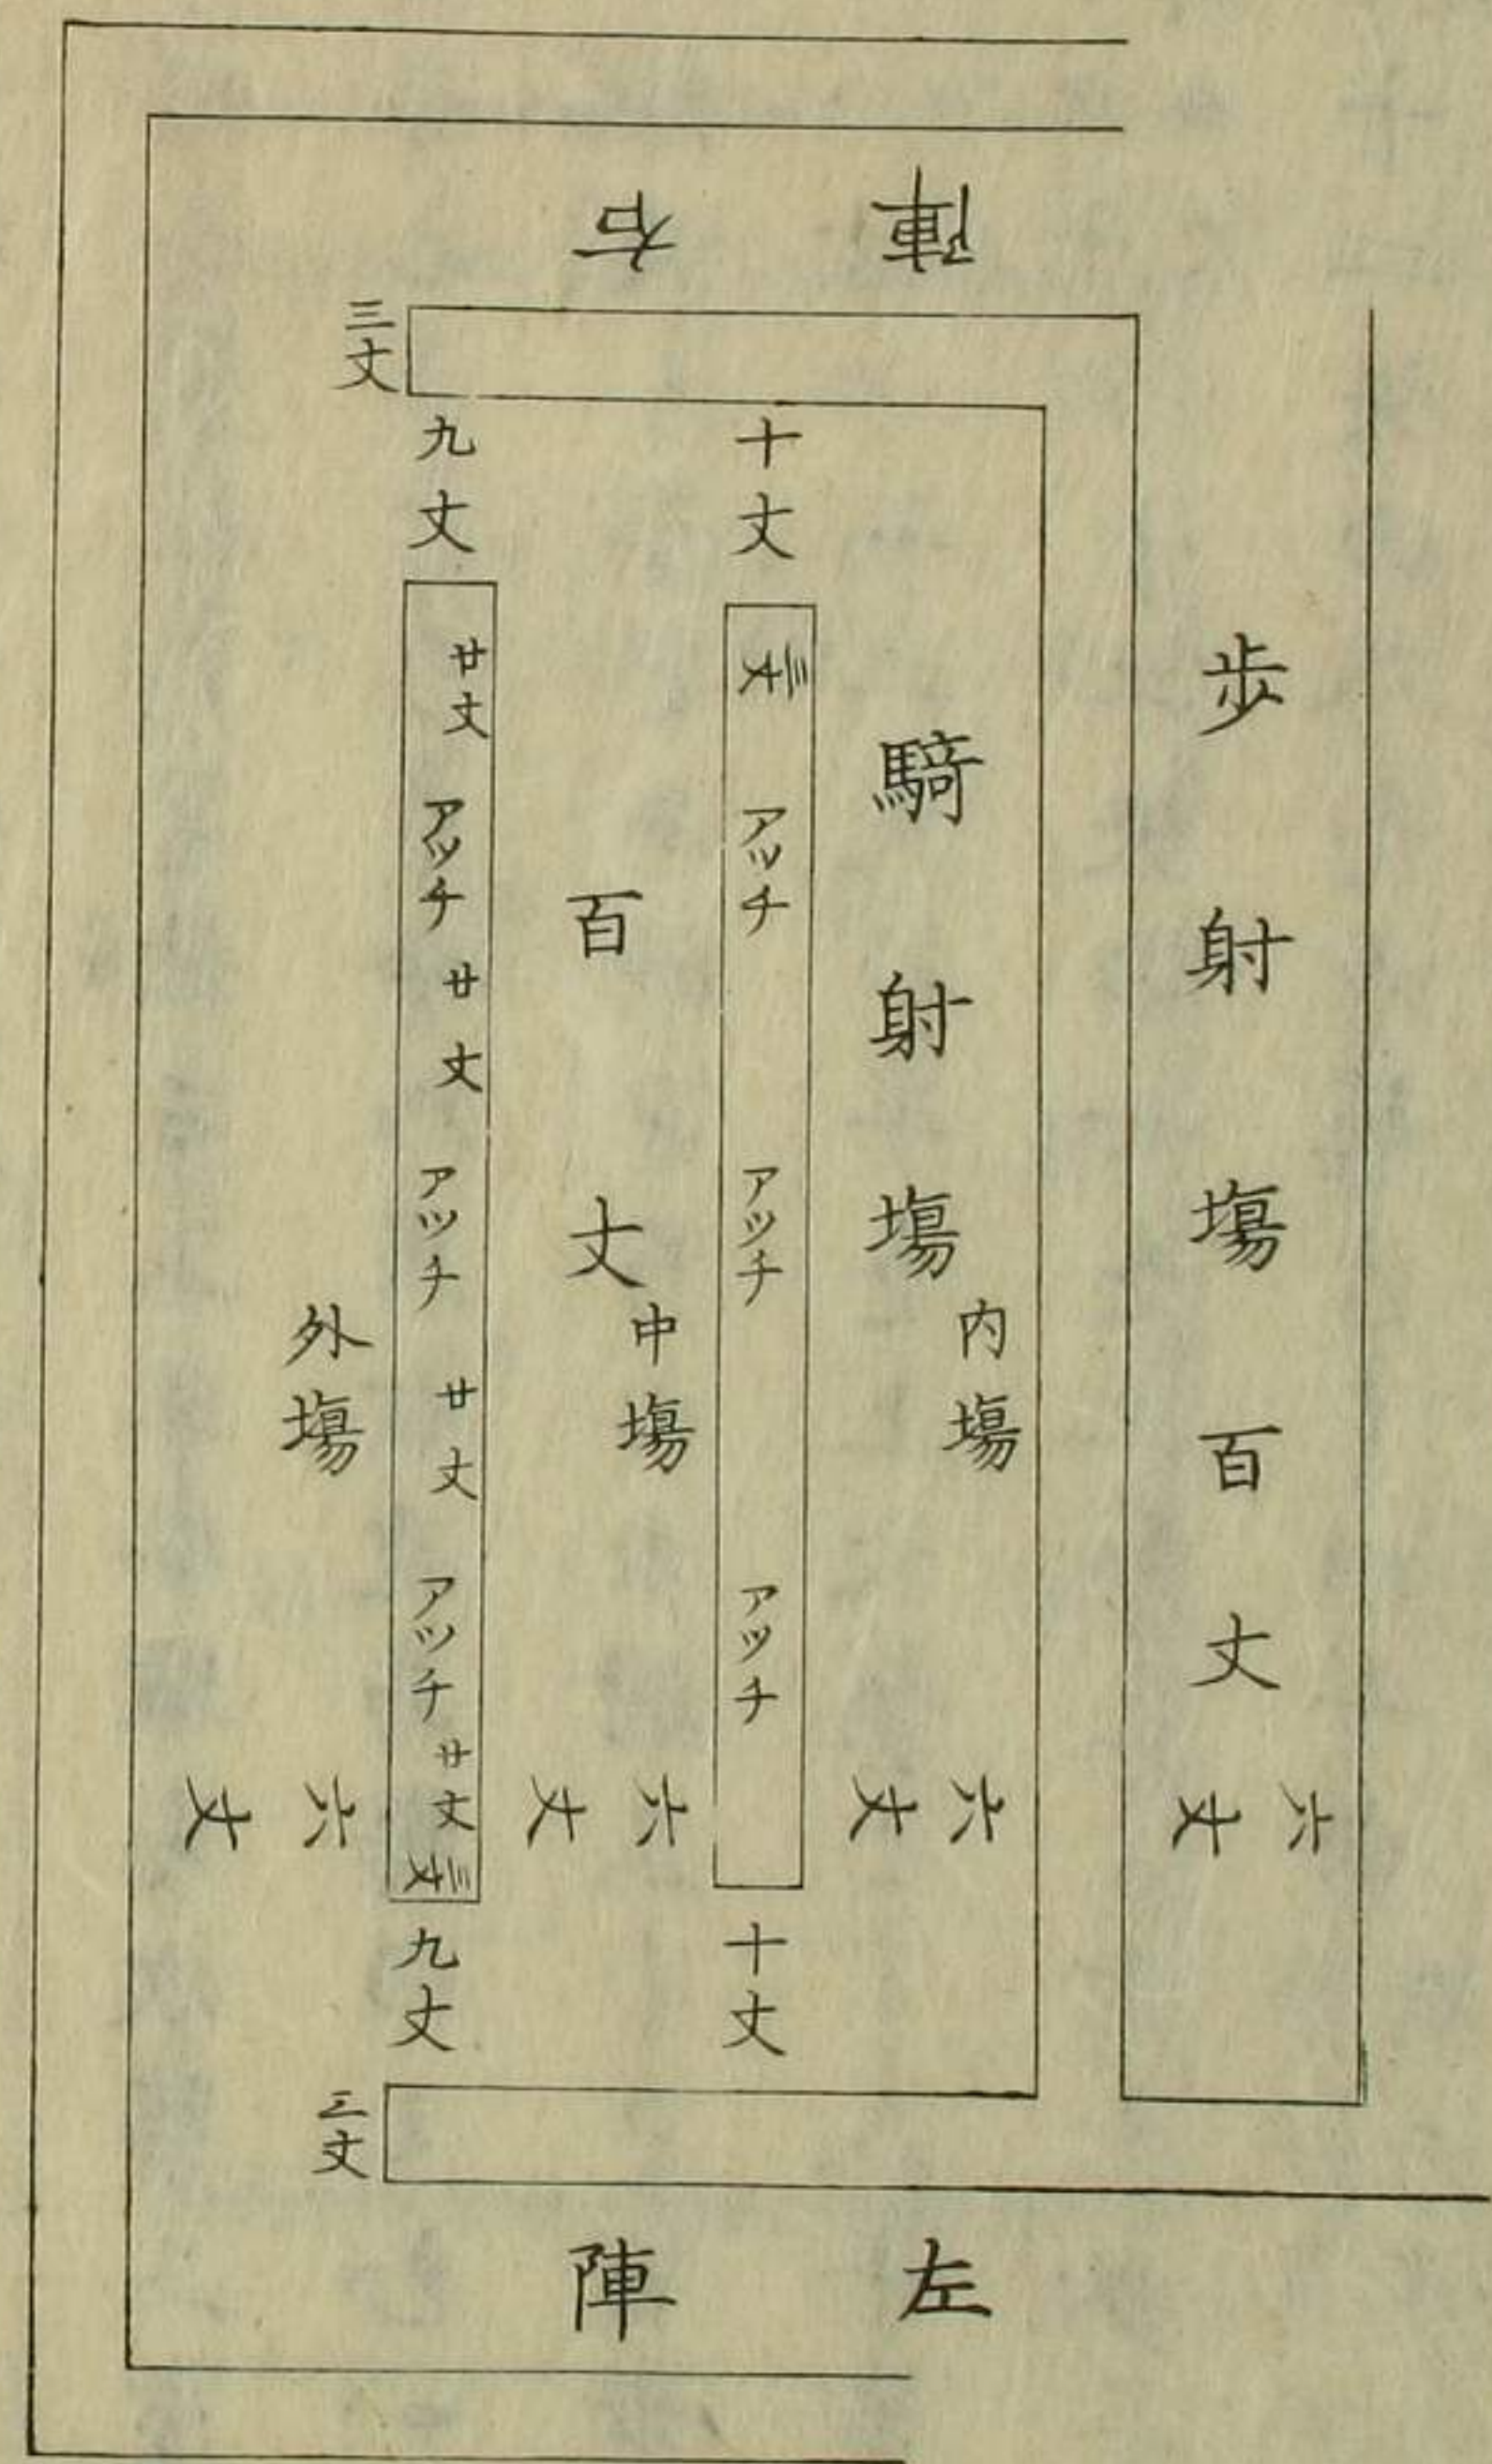 歩射塲百丈
六丈
陣右
騎射塲
内塲
六丈
十丈
三丈
アツチ
アツチ
アツチ
十丈
百丈
中塲
六丈
三丈
九丈
廿丈
アツチ
廿丈
アツチ
廿丈
アツチ
廿丈
三丈
九丈
三丈
外塲
六丈
左陣